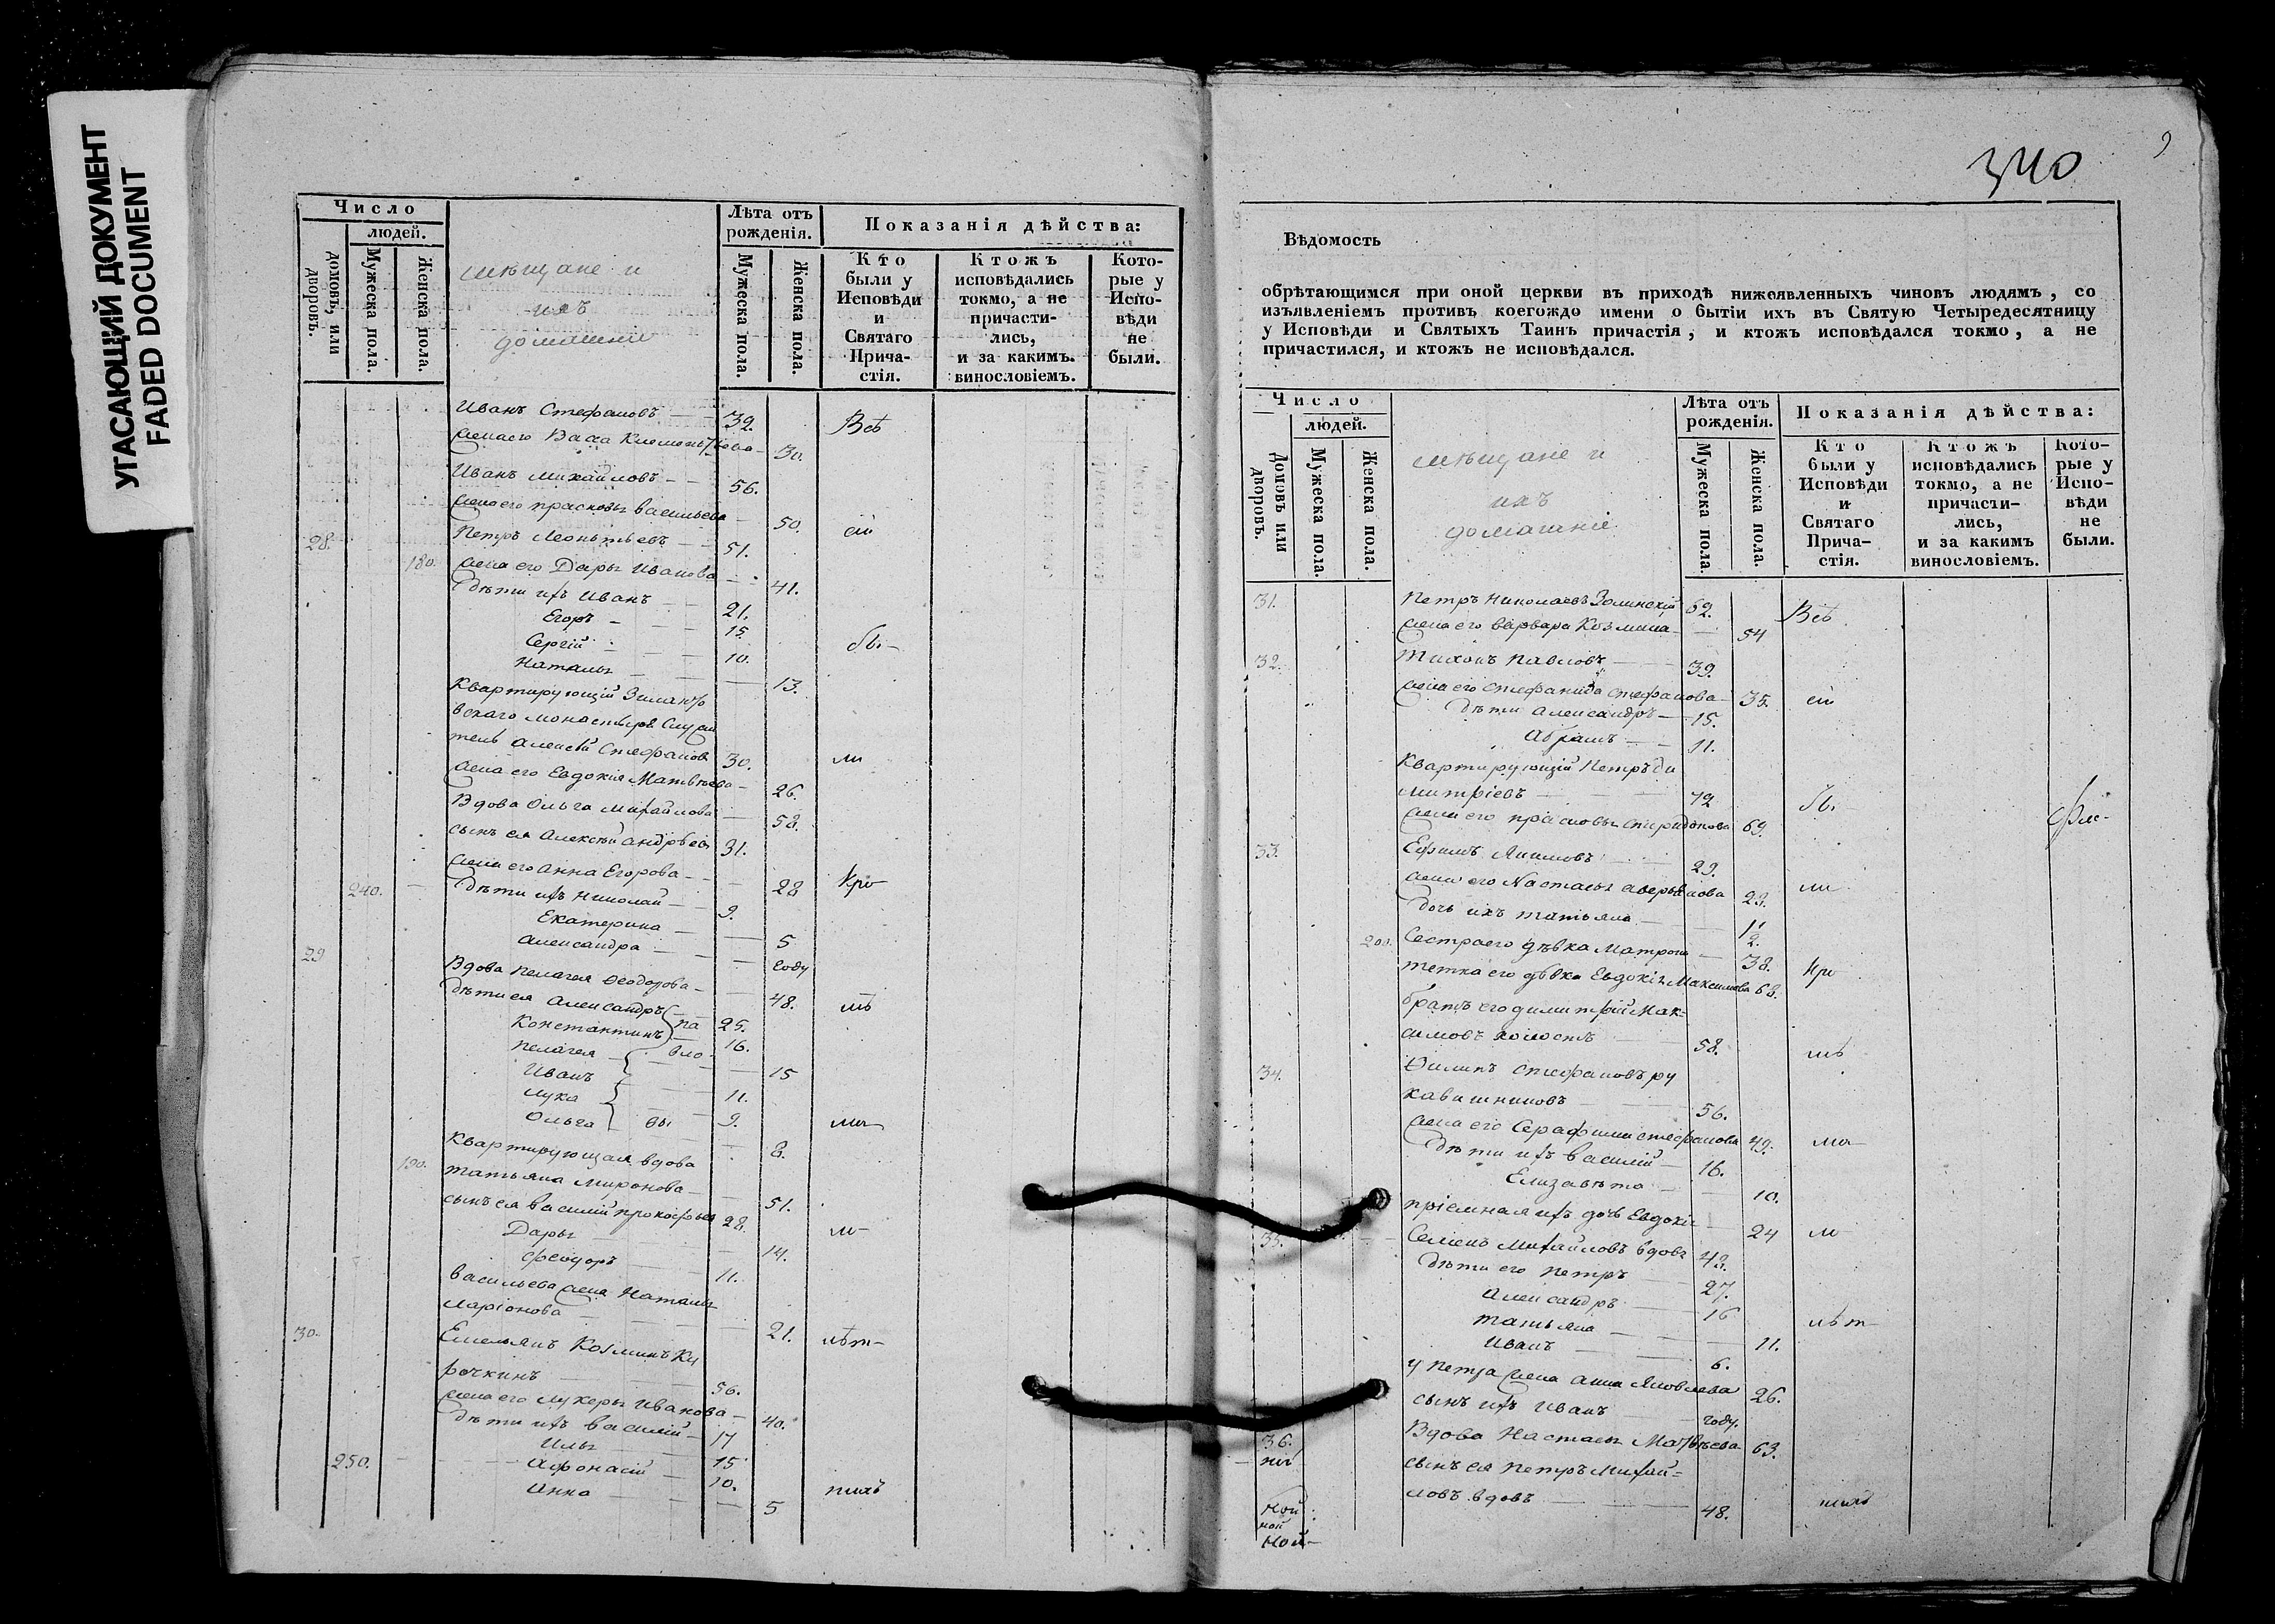 УГАСАЮЩИЙ ДОКУМЕНТ
FADED DOCUMENT
Число
людей.
домовъ, или дворовъ.
Мужеска пола.
Женска пола.
мѣщане и
ихъ
домашніе
Лѣта отъ рожденія.
Мужеска пола.
Женска пола.
Показанія дѣйства:
Кто были у Исповѣди и Святаго Прича- стія.
Ктожъ исповѣдались токмо, а не причасти- лись, и за какимъ. винословіемъ.
Кото- рые у Испо- вѣди не были.
Иванъ Стефановъ 39. Всѣ
жена его Васа Климентьева 30.
Иванъ Михайловъ 56.
жена его Прасковья Васильева 50.
28. Петръ Леонтьевъ 51. сіи
180. жена его Дарья Иванова 41.
дѣти ихъ Иванъ 21.
Егоръ 15.
Сергій 10. бы-
Наталья 13.
Квартирующій
вскаго монастыря служи
тель Алексѣй Стефановъ 30. ли
жена его Евдокія Матвѣева 26.
Вдова Ольга Михайлова 58.
сынъ ея Алексѣй Андрѣевъ 31.
жена его Анна Егорова 28 Кро
240. дѣти ихъ Николай 9.
Екатерина 5
Александра году
29 Вдова Пелагея Ѳеодорова 48. мѣ
дѣти ея Александръ 25.
Константинъ 16.
Пелагея 15
Иванъ 11.
Лука 9.
Ольга 8. ма
Квартирующая вдова
190. Татьяна Миронова 51.
сынъ ея Василій Прокофьевъ 28. ло
Дарья 14.
Феодоръ 11.
Васильева жена Наталья
Ларіонова 21. лѣт-
30. Емельянъ Козминъ Ку
рочкинъ 56.
жена его Лукерья Иванова 40.
дѣти ихъ Василій 17
Илья 15
250. Афонасій 10. нихъ
Анна 5
340
Вѣдомость
обрѣтающимся при оной церкви въ приходѣ нижеявленныхъ чиновъ людямъ, со
изъявленіемъ противъ коегождо имени о бытіи ихъ въ Святую Четыредесятницу
у Исповѣди и Святыхъ Таинъ причастія, и ктожъ исповѣдался токмо, а не
причастился, и ктожъ не исповѣдался.
Число
людей.
Домовъ или дворовъ.
Мужеска пола.
Женска пола.
мѣщане и
ихъ
домашніе
Лѣта отъ рожденія.
Мужеска пола.
Женска пола.
Показанія дѣйства:
Кто были у Исповѣди и Святаго Прича- стія.
Ктожъ исповѣдались токмо, а не причасти- лись, и за какимъ винословіемъ.
Кото- рые у Испо- вѣди не были.
31. Петръ Николаевъ 62. Всѣ
жена его Варвара Козмина 54
32. Тихонъ Павловъ 39.
жена его Стефанида Стефанова 35. сіи
дѣти Александръ 15.
Абрамъ 11.
Квартирующій Петръ Ди
митріевъ 72 бы-
жена его Прасковья Спиридонова 69.
33. Ефимъ Якимовъ 29.
жена его Настасья Аверьянова 29. ли
дочь ихъ Татьяна
200. Сестра его дѣвка Матрона 38.
тетка его дѣвка Евдокія Максимова 68. Кро
братъ его Димитрій Мак-
симовъ холостъ 58. мѣ
34. Филипъ Стефановъ Ру
кавишниковъ 56.
жена его Серафима Стефанова 49. ма-
дѣти ихъ Василій 16.
Елизавета 10.
пріемная ихъ дочь Евдокія 24 ло
35. Семенъ Михайловъ вдовъ 48.
дѣти его Петръ 27.
Александръ 16
Татьяна 11. лѣт-
Иванъ 6.
у Петра жена Анна Яковлева 26.
сынъ ихъ Иванъ году.
36. Вдова Настасья Матвѣева 63.
сынъ ея Петръ Михай-
ловъ вдовъ 48. нихъ
ной
ной
ной-